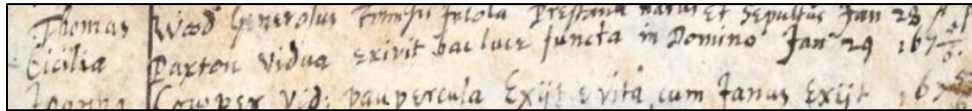 Thomas Wood Generosus Incola Prestana natus et Sepultus Jan 28
Cicilia Paxton Vidua exivit hac luce juncta in Domino Jan 29 167
Joanna Cowper Vid: paupercula Exijt e vita cum Janus Exijt 67